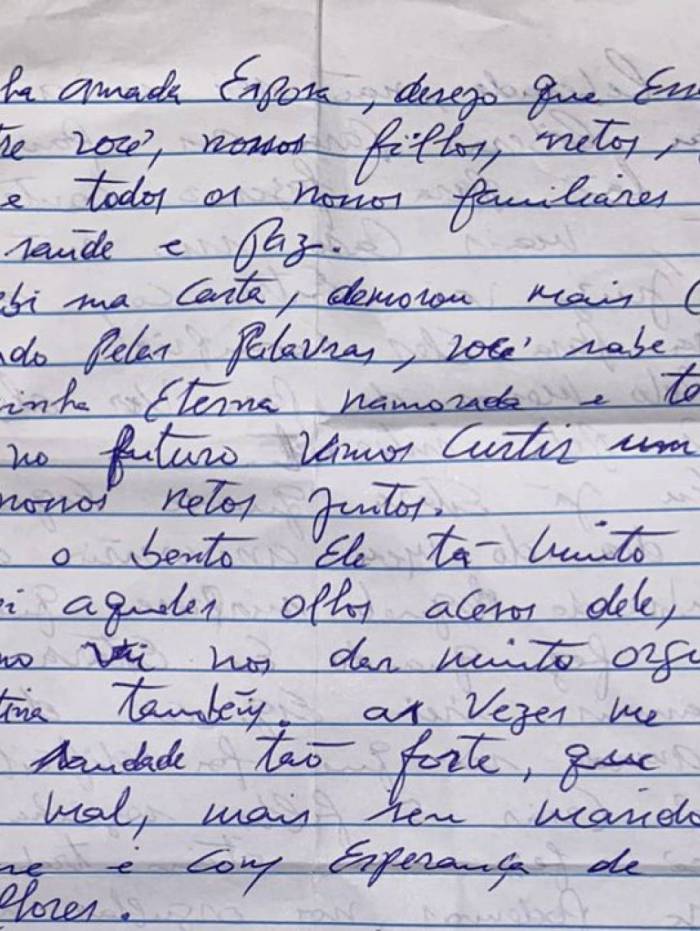 ha amada Esposa, desejo que
tre você, nossos filhos, netos,
e todos os nossos familiares
saúde e Paz.
bi sua Carta, demorou mais
do Pelas Palavras, você sabe
inha Eterna namorada e
no futuro vamos Curtir um
nossos netos juntos.
o bento Ele tá muito
i aqueles olhos acesos dele,
no vai nos dar muito orgu
tina também. as vezes me
saudade tão forte, que
mal, mais seu marido
e é com Esperança de
lhores.